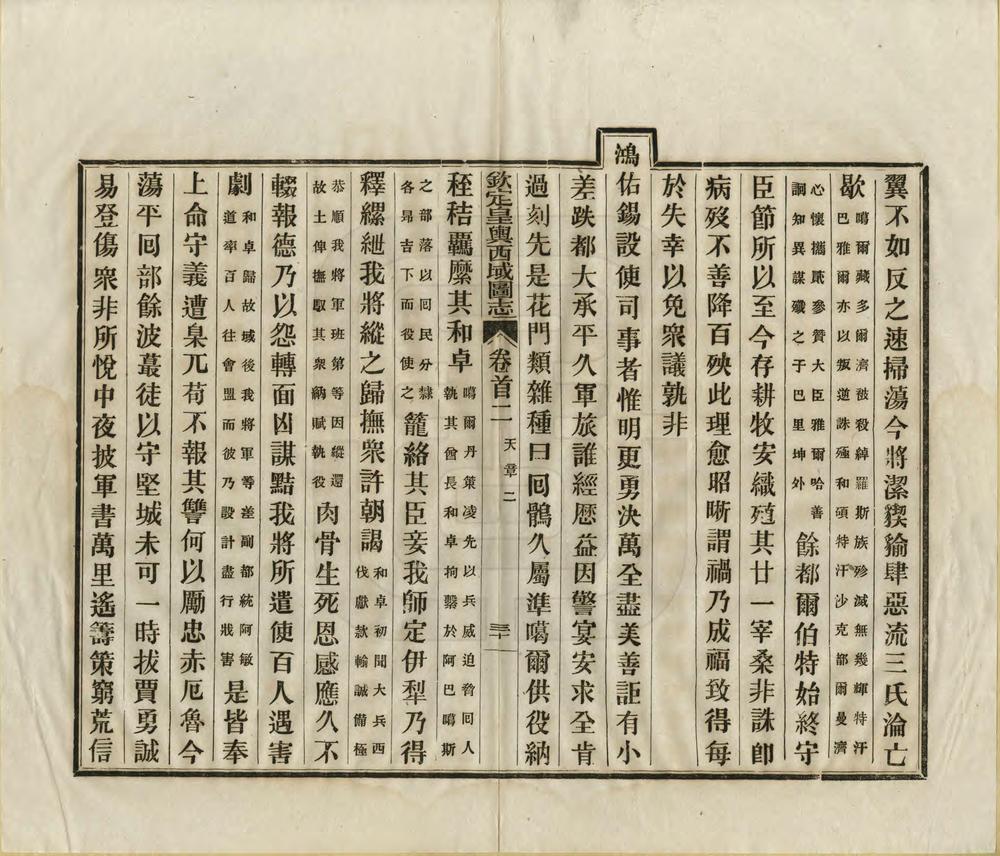 翼不如反之速掃蕩今將潔猰貐肆惡流三氏淪亡
歇噶爾藏多爾濟被殺綽羅斯族殄滅無幾輝特汗巴雅爾亦以叛逆誅殛和碩特汗沙克都爾曼濟
心懷攜貳參贊大臣雅爾哈善詗知異謀殲之于巴里坤外餘都爾伯特始終守
臣節所以至今存耕牧安織殖其廿一宰桑非誅卽
病歿不善降百殃此理愈昭晰謂禍乃成福致得每
於失幸以免衆議孰非
鴻佑錫設使司事者惟明更勇决萬全盡美善詎有小
差跌都大承平久軍旅誰經歷益因警宴安求全肯
過刻先是花門類雜種曰囘鶻久屬準噶爾供役納
欽定皇輿西域圖志 卷首二 天章二 三十一
秷秸羈縻其和卓噶爾丹策凌先以兵威迫脅囘人執其酋長和卓拘繫於阿巴噶斯
之部落以囘民分隸各昂吉下而役使之籠絡其臣妾我師定伊犁乃得
釋縲絏我將縱之歸撫衆許朝謁和卓初聞大兵西伐獻款輸誠備極
恭順我將軍班第等因縱還故土俾撫馭其衆納賦執役肉骨生死恩感應久不
輟報德乃以怨轉面凶謀黠我將所遣使百人遇害
劇和卓歸故城後我將軍等差副都統阿敏道率百人往會盟而彼乃設計盡行戕害是皆奉
上命守義遭臬兀苟不報其讐何以勵忠赤厄魯今
蕩平囘部餘波蕞徒以守堅城未可一時拔賈勇誠
易登傷衆非所悅中夜披軍書萬里遙籌策窮荒信